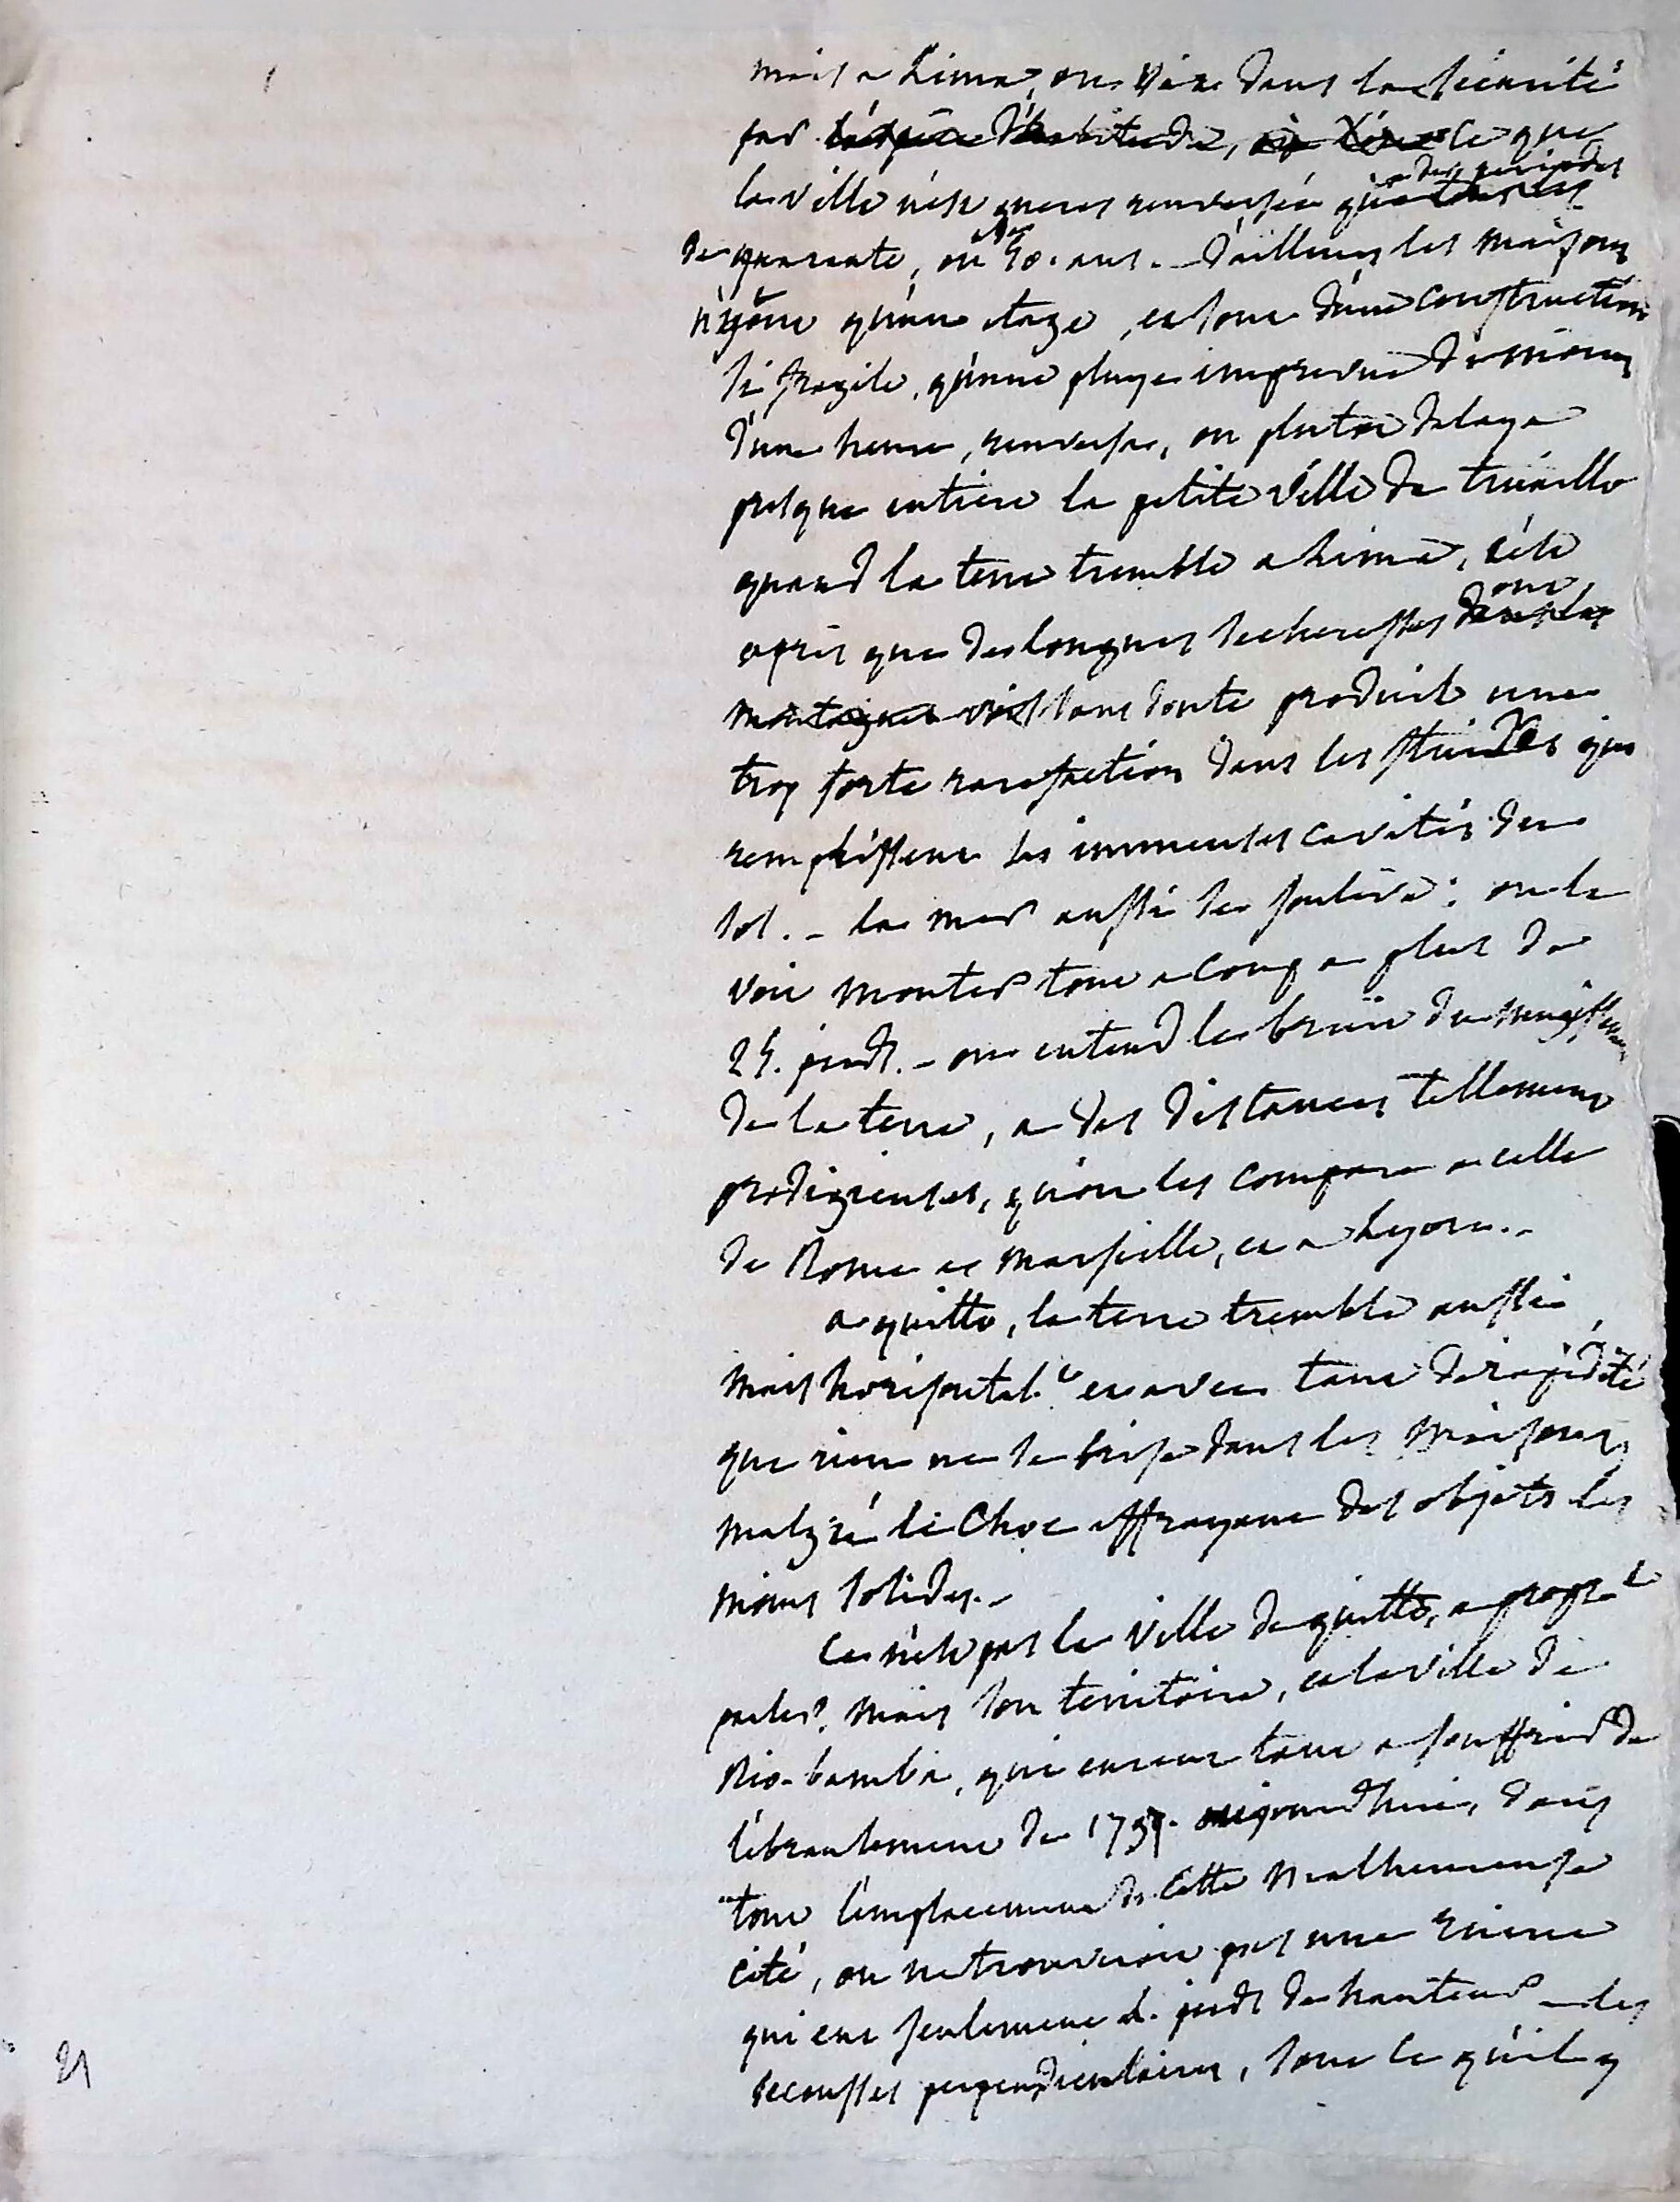 mais a Lima, on vit dans la sécurité
par l'espece d'habitude, ce que
la ville n'est gueres renversée qu'a des periodes
de quarante, ou 50. ans. - d'ailleurs les maisons
n'y ont qu'un etage, et sont d'une construction
si fragile, qu'une pluye imprevue de moins
d'une heure, renversa, ou plutot delaya
presque entiere la petite ville de truxillo
quand la terre tremble a Lima, c'est
apres que de longues secheresses ont
montagnes sans doute produit une
trop forte rarefaction dans les fluides qui
remplissent les immenses cavités du
sol. - la mer aussi se souleve: on la
voit monter tout a coup a plus de
25. pieds. - on entend le bruit du mugissement
de la terre, a des distances tellement
prodigieuses, qu'on les compare a celle
de Rome a Marseille, et a Lyon. -
a quitto, la terre tremble aussi,
mais horisontal.t et avec tant de rapidité
que rien ne se brise dans les maisons,
malgré le choc effrayant des objets les
moins solides. -
ce n'est pas la ville de quitto, a propr.t
parler, mais son territoire, et la ville de
Rio-bamba, qui eurent tant a souffrir de
l'ebranlement de 1797. aujourdhui, dans
tout l'emplacement de cette malheureuse
cité, on ne trouveroit pas une ruine
qui eut seulement 2. pieds de hauteur - les
secousses perpendiculaires, sont ce qu'il y
21